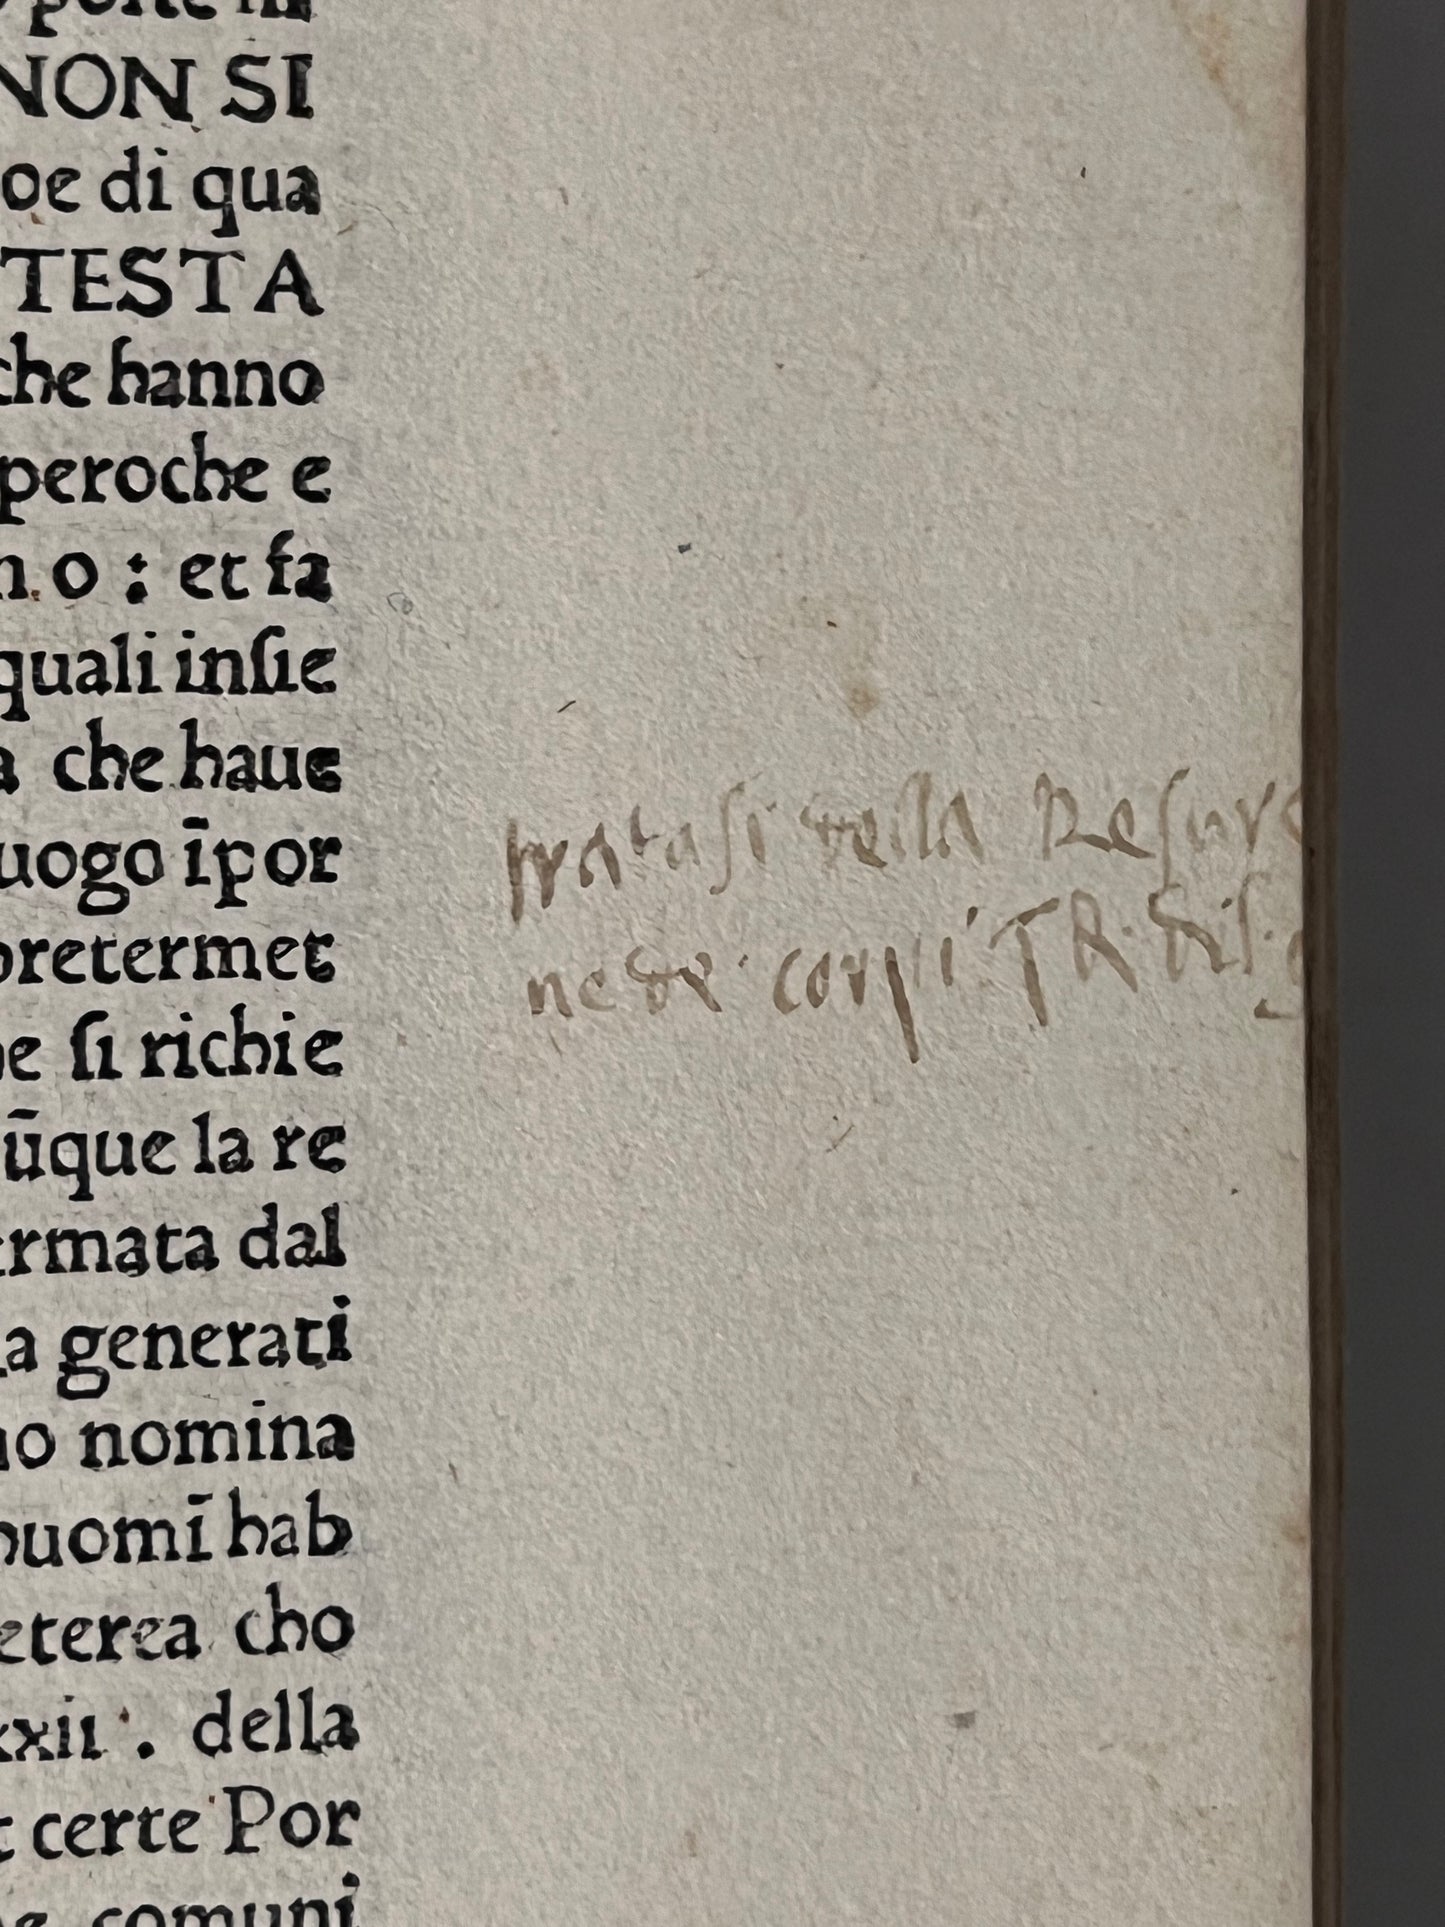 NON SI
oe di qua
TESTA
che hanno
peroche e
no : et fa
quali inſie
a che haue
uogo īpor
pretermet
ne ſi richie
ūque la re
ermata dal
a generati
no nomina
huomī hab
eterea cho
xxii . della
t certe Por
comuni
trataſi della Reſurre
ne de corpi